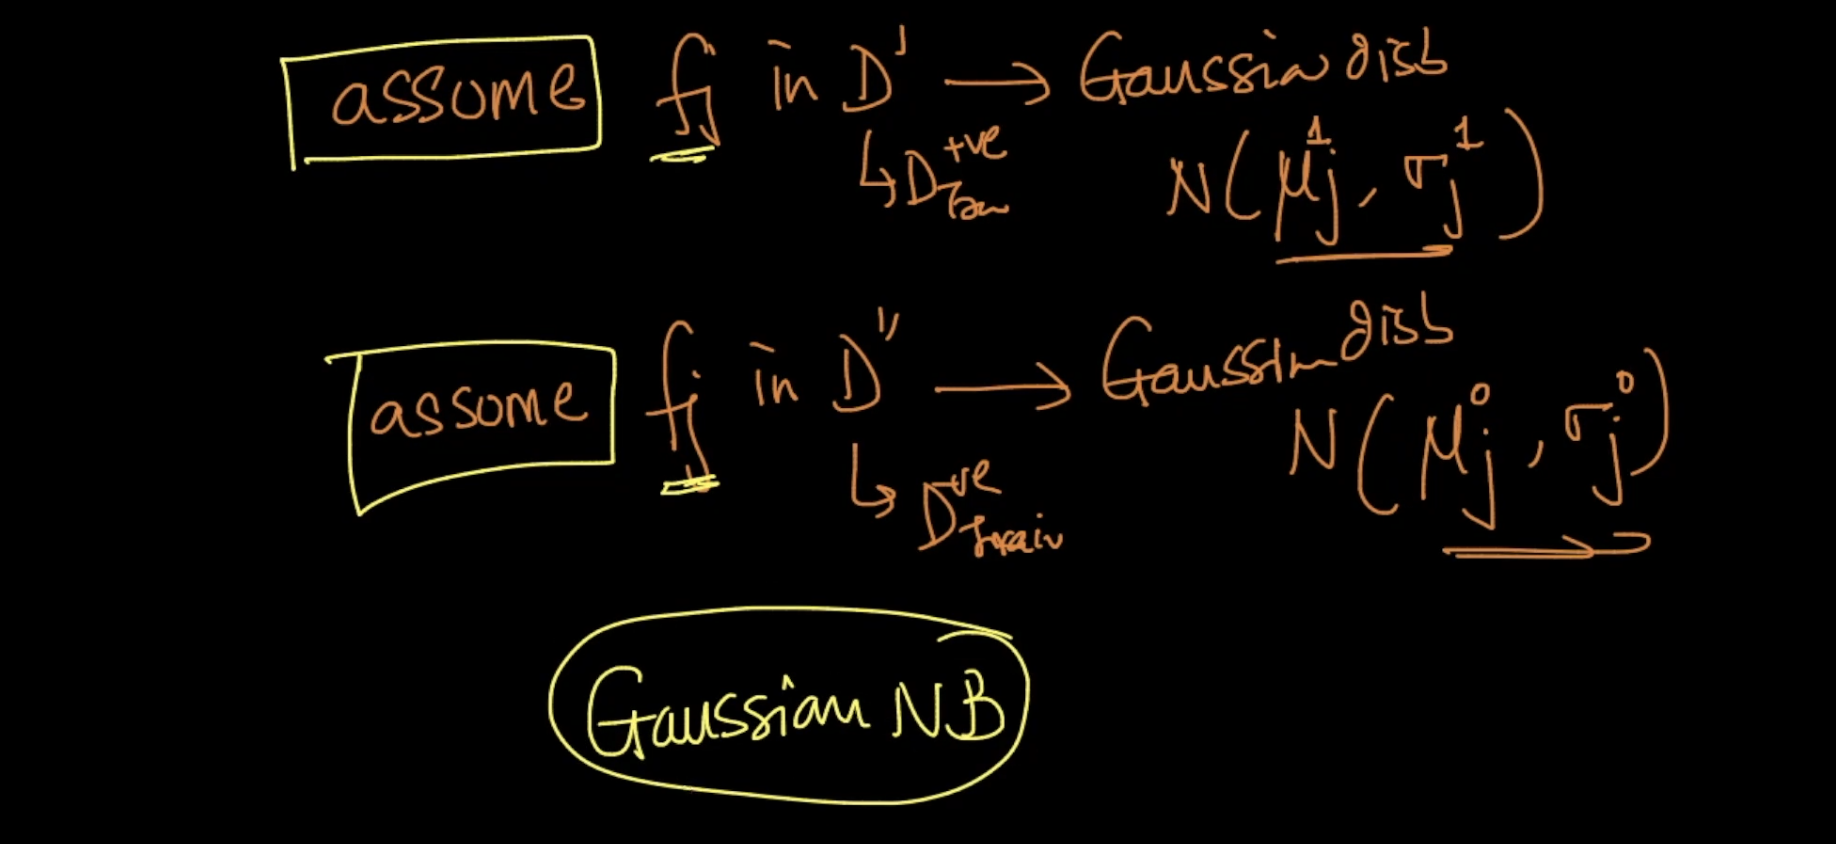 assume fj in D' → Gaussian distb
↳ D+ve
N(μj¹, σj¹)
assume fj in D'' → Gaussian distb
↳ D-ve Train
N(μj⁰, σj⁰)
Gaussian NB